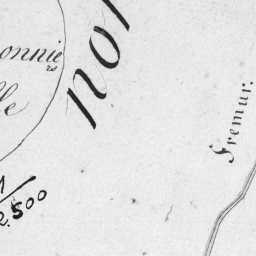 onnie
rs
lle
NOR
Fremur.
1/2.500